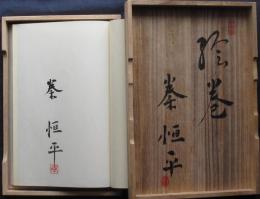 絵巻
秦恒平
秦恒平